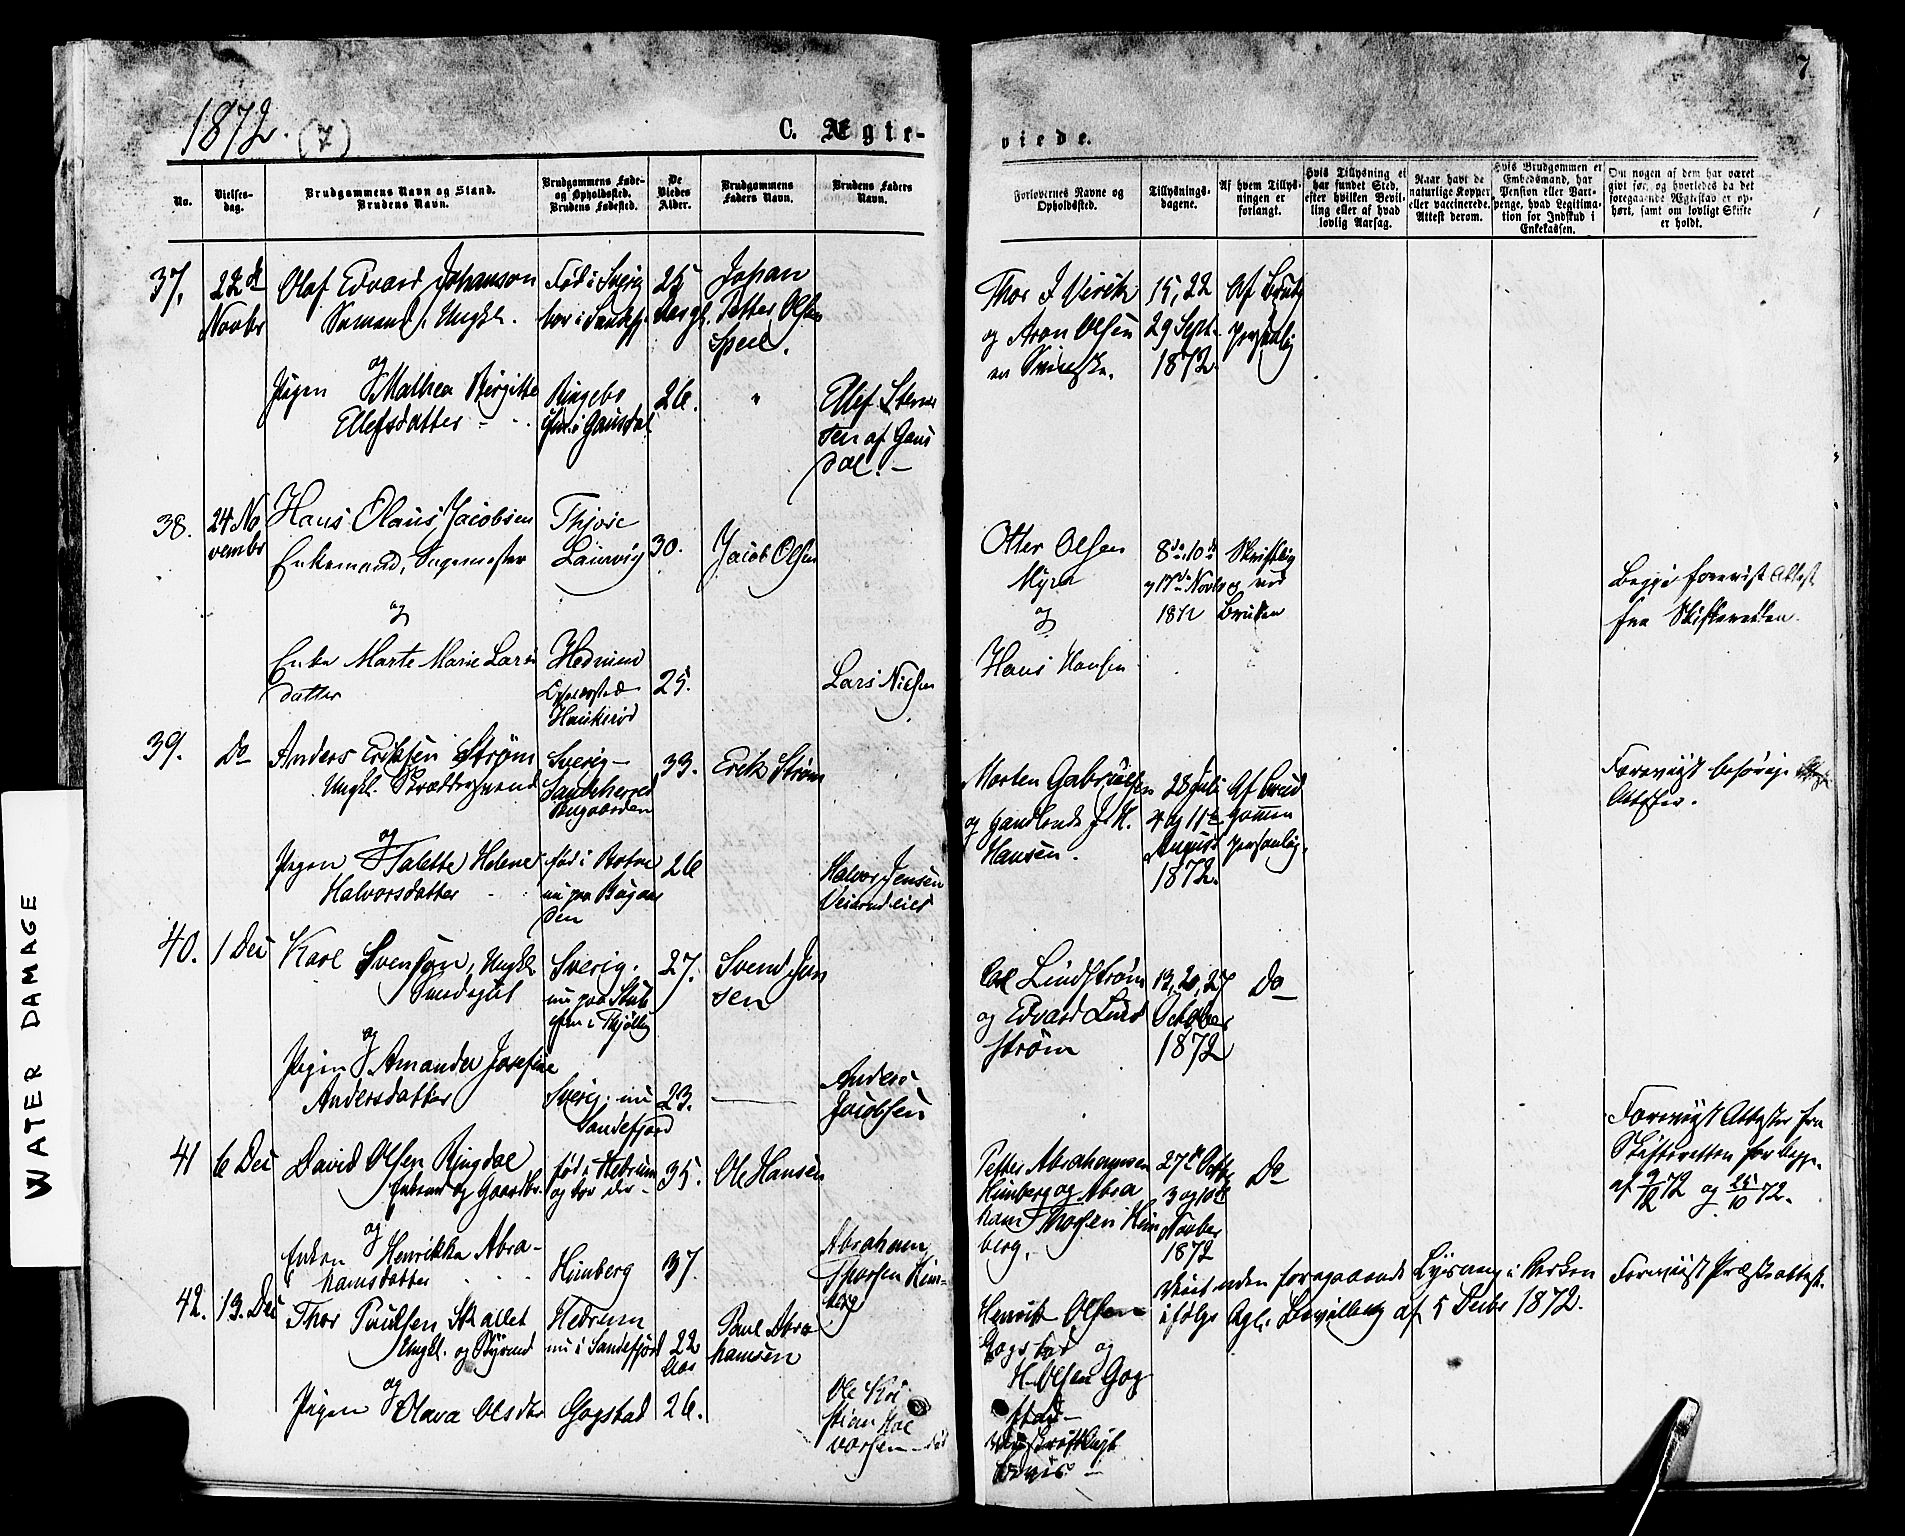 7.
1872. (7)
C. Ægte-
viede.
No.
Vielses-
dag.
Brudgommens Navn og Stand.
Brudens Navn.
Brudgommens Føde-
og Opholdssted.
Brudens Fødested.
De
Viedes
Alder.
Brudgommens
Faders Navn.
Brudens Faders
Navn.
Forlovernes Navne og
Opholdssted.
Tillysnings-
dagene.
Af hvem Tillys-
ningen er
forlangt.
Hvis Tillysning ei
har fundet Sted,
efter hvilken Bevil-
ling eller af hvad
lovlig Aarsag.
Naar havt de
naturlige Kopper
eller vaccinerede.
Attest derom.
Hvis Brudgommen er
Embedsmand, har
Pension eller Vart-
penge, hvad Legitima-
tion for Indskud i
Enkekassen.
Om nogen af dem har været
gift før, og hvorledes da det
foregaaende Ægteskab er op-
hørt, samt om lovligt Skifte
er holdt.
37.
22de
Novbr
Olaf Edvard Johanson
Sømand, Ungkl.
og
Pigen Mathea Birgitte
Ellefsdatter
Fød i Sverig
bor i Sandefj.
Ringebo
i Gausdal
25
26.
Johan
Petter Olsen
"
Ellef Stens
sen af Gaus
dal.
Thor J Virik
og Aron Olsen
15, 22
29 Sept.
1872.
Af Brudg
personlig
38.
24 No
vembr
Hans Olaus Jacobsen
Enkemand, Sagmester
og
Enke Marte Marie Lars
datter
Thjose
Laurvig
Hedrum
Opholdssted
Haukerød
30.
25.
Jacob Olsen
Lars Nielsen
Otter Olsen
Myra
og
Hans Hansen
8de 10de
og 17de Novbr
1872
Skriftlig
og ved
Bruden
Begge forevist Attest
fra Skifteretten.
39.
Do
Anders Eriksen Strøm
Ungkl. Skræddersvend
og
Pigen Talette Helene
Halvorsdatter
Sverig
Sandeherred
Bugaarden
fød i Botne
nu paa Bugaar
den
33.
26
Erik Strøm
Halvor Jensen
Morten Gabrielsen
og Handlende J. M.
Hansen.
28 Juli
4 og 11te
August
1872.
Af Brud
gommen
personlig.
Forevist behørige
Attester.
40.
1 Dec
Karl Svenson, Ungkl
og
Pigen Amanda Josefine
Andersdatter
Sverig.
nu paa Stub
i Thjølling
Sverig. nu
Sandefjord
27.
23.
Svend Jen
sen
Anders
Jacobsen
Carl Lindstrøm
og Edvard Lind
strøm
13, 20, 27
October
1872
Do
41
6 Dec
David Olsen Ringdal
Enkemd og Gaardbr.
og
Enken Henrikke Abra-
hamsdatter
fød i Hedrum
og bor der
Himberg
35.
37.
Ole Hansen
Abraham
Thorsen Him-
berg
Petter Abrahamsen
Himberg og Abra
ham Thorsen Him
berg.
27de Octbr
3 og 10de
Novbr
1872
Do
Forevist Attester fra
Skifteretten for begge
af 9/12 72 og 25/10 72.
42.
13. Dec
Thor Paulsen Skallet
Ungkl. og Styrmd
og
Pigen Olava Olsdtr
Hedrum
nu i Sandefjord
Gogstad
22
Aar
26.
Paul Abra
hamsen
Ole Kri
stian Hal
vorsen
Henrik Olsen
Gogstad og
H. Olsen Gog
stad
Viet uden foregaaende Lysning i Kirken
ifølge Kgl. Bevilling af 5 Decbr 1872.
Forevist Præsteattest.
WATER DAMAGE